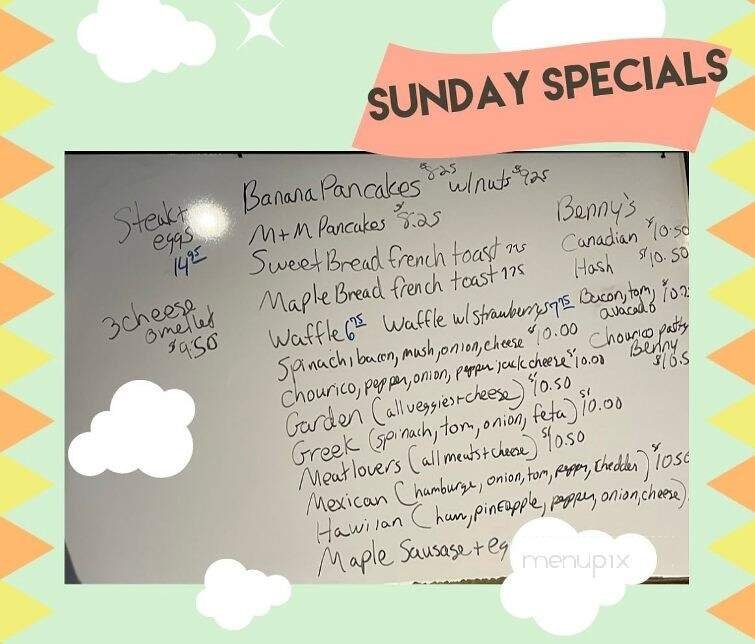 SUNDAY SPECIALS
Steak +
eggs
14.95
3 cheese
omellet
$9.50
Banana Pancakes $8.25 w/nuts $9.25
M+M Pancakes $8.25
Sweet Bread french toast 7.75
Maple Bread french toast 7.75
Waffle 6.75 Waffle w/ strawberrys 7.75
Spinach, bacon, mush, onion, cheese $10.00
chourico, pepper, onion, pepper jack cheese $10.00
Garden (all veggies + cheese) $10.50
Greek (spinach, tom, onion, feta) $10.00
Meatlovers (all meats + cheese) $10.50
Mexican (hamburge, onion, tom, pepper, chedder) $10.50
Hawiian (ham, pineapple, pepper, onion, cheese)
Maple Sausage + eg
Benny's
Canadian $10.50
Hash $10.50
Bacon, tom,
avacado
Chourico patty
Benny
$10.5
menupix